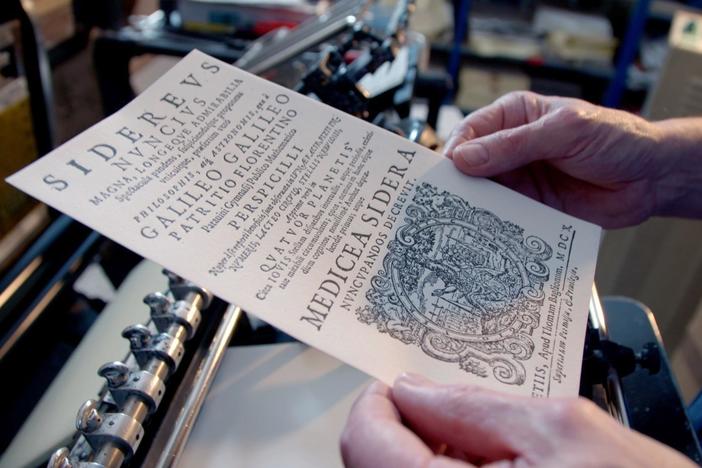 SIDEREVS
NVNCIVS
MAGNA, LONGEQVE ADMIRABILIA
Spectacula pandens, suspiciendaque proponens
vnicuique, præsertim verò
PHILOSOPHIS, atq; ASTRONOMIS, quæ à
GALILEO GALILEO
PATRITIO FLORENTINO
Patauini Gymnasij Publico Mathematico
PERSPICILLI
Nuper à se reperti beneficio sunt obseruata in LVNÆ FACIE, FIXIS IN-
NVMERIS, LACTEO CIRCVLO, STELLIS NEBVLOSIS,
Apprime verò in
QVATVOR PLANETIS
Circa IOVIS Stellam disparibus interuallis, atque periodis, celeri-
tate mirabili circumuolutis; quos, nemini in hanc vsque
diem cognitos, nouissimè Author depræ-
hendit primus; atque
MEDICEA SIDERA
NVNCVPANDOS DECREVIT
ETIIS, Apud Thomam Baglionum. M DC X.
Superiorum Permissu, & Priuilegio.